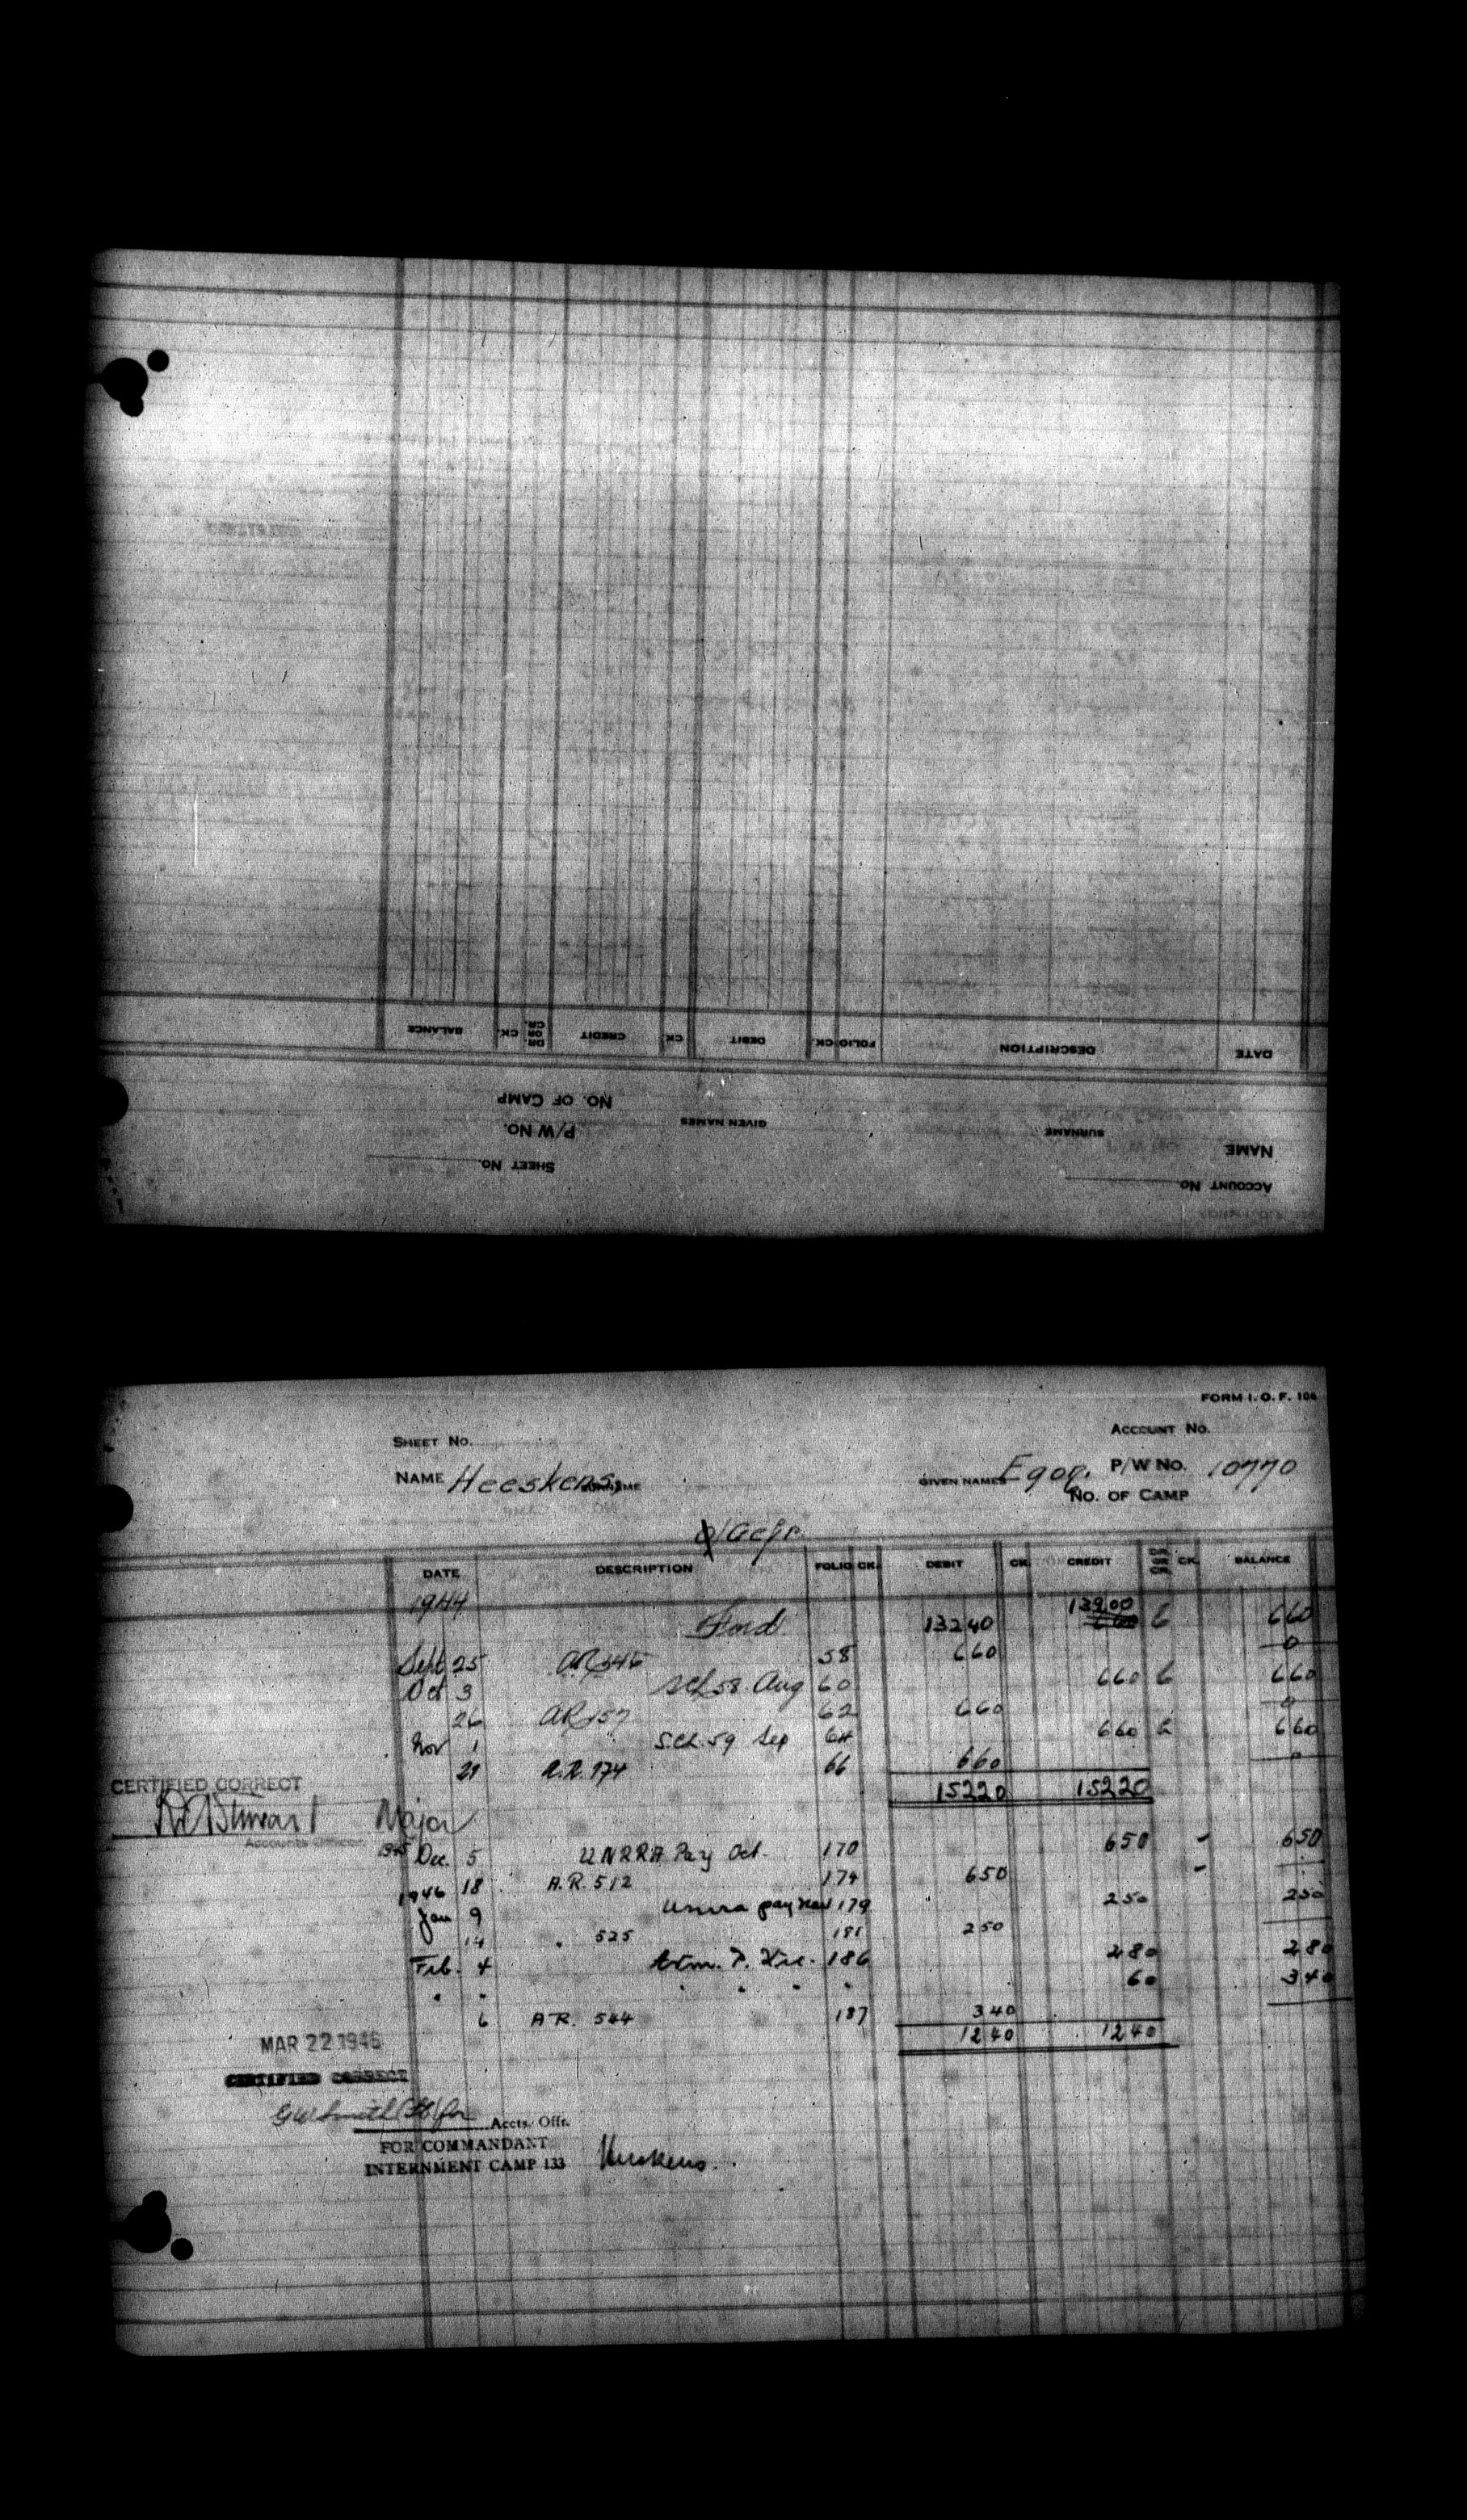 BALANCE CK. DR. OR CR. CREDIT CK. DEBIT CK. FOLIO DESCRIPTION DATE
NO. OF CAMP
P/W NO. GIVEN NAMES SURNAME NAME
SHEET No. ACCOUNT No.
FORM I. O. F. 106
SHEET No. ACCOUNT No.
NAME Heeskens, SURNAME GIVEN NAMES P/W No. 10770
No. OF CAMP
DATE DESCRIPTION FOLIO CK. DEBIT CK. CREDIT DR. OR CR. CK. BALANCE
1944
Fwd 132 40 139 00 6 60 C 6 60
Sept 25 58 6 60 0
Oct 3 Sch 58 Aug 60 6 60 C 6 60
26 AR 157 62 6 60 0
Nov 1 Sch. 59 Sep 64 6 60 C 6 60
29 A.R. 174 66 6 60 0
CERTIFIED CORRECT 152 20 152 20
Major
Accounts Officer
1945 Dec. 5 UNRRA Pay Oct. 170 6 50 - 6 50
18 A.R. 512 174 6 50 -
1946
Jan 9 Unrra pay Nov 179 2 50 2 50
14 " 525 181 2 50
Feb. 4 186 2 80 2 80
" " " " " " 60 3 40
6 A.R. 544 187 3 40
12 40 12 40
MAR 22 1946
CERTIFIED CORRECT
GW Smith Accts. Offr.
FOR COMMANDANT
INTERNMENT CAMP 133 Heeskens.